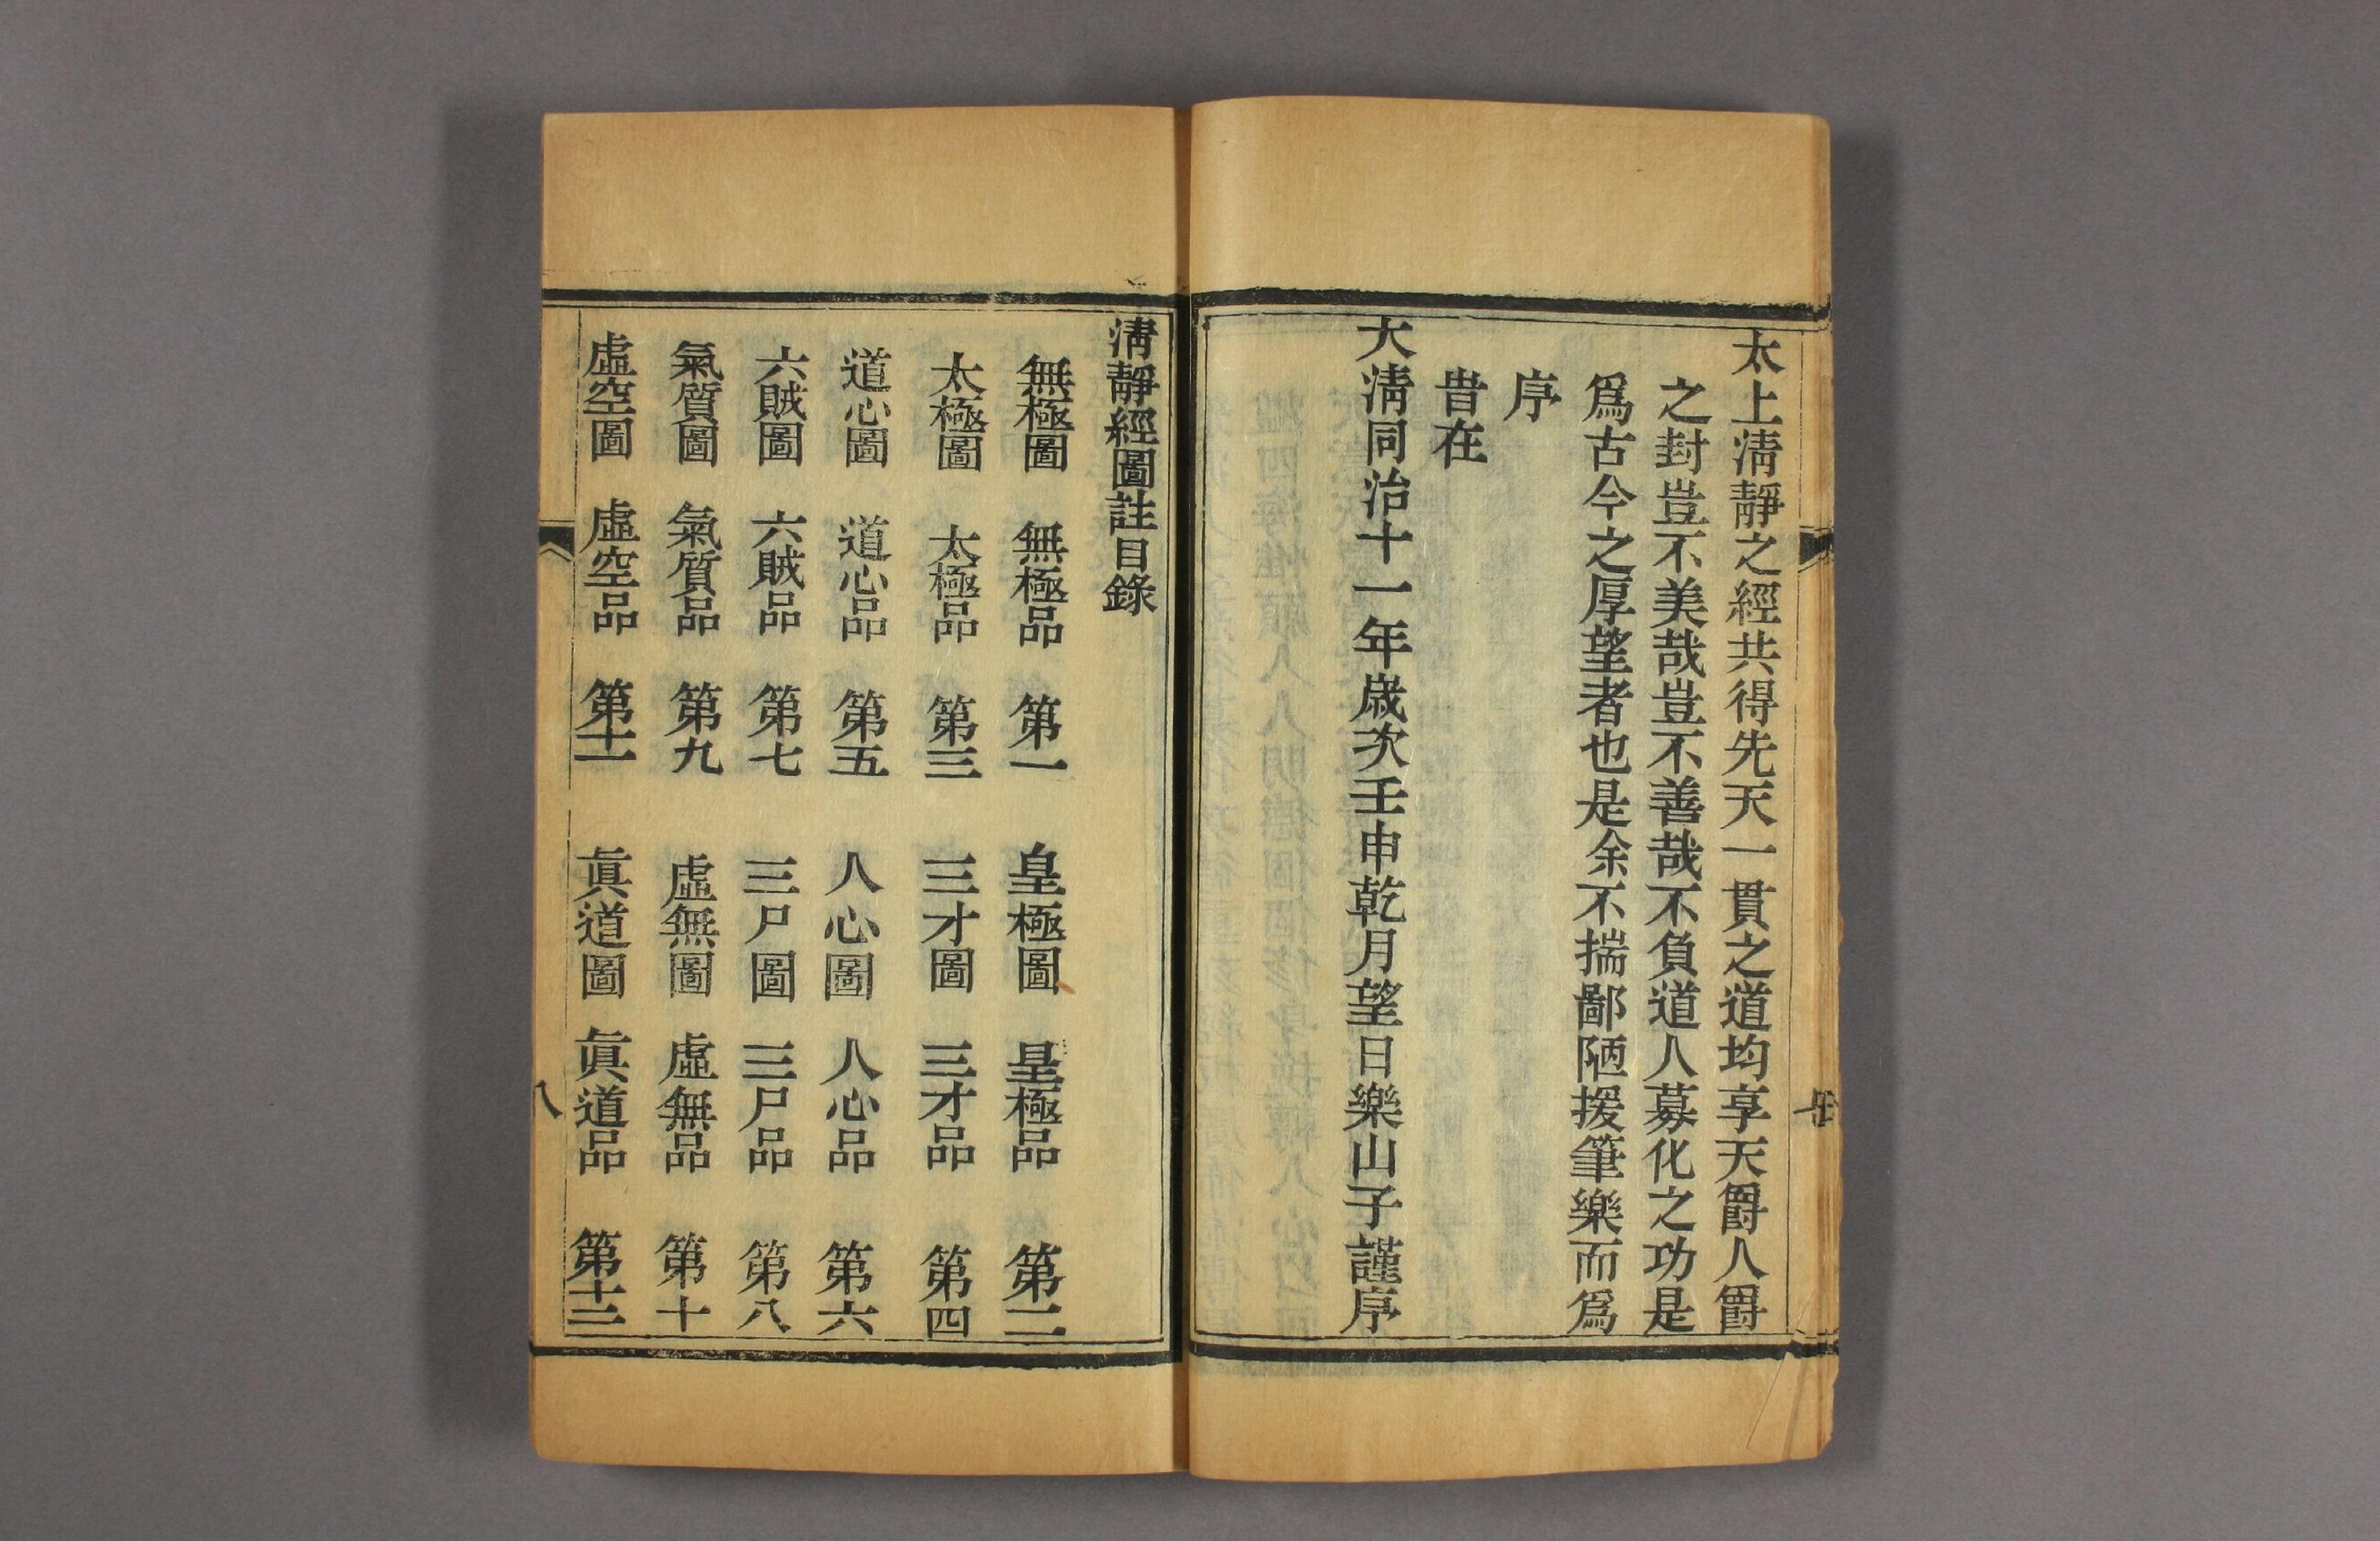 太上淸靜之經共得先天一貫之道均享天爵人爵
之封豈不美哉豈不善哉不負道人募化之功是
爲古今之厚望者也是余不揣鄙陋援筆樂而爲
序
昔在
大淸同治十一年歲次壬申乾月望日樂山子謹序
淸靜經圖註目錄
無極圖 無極品 第一 皇極圖 皇極品 第二
太極圖 太極品 第三 三才圖 三才品 第四
道心圖 道心品 第五 人心圖 人心品 第六
六賊圖 六賊品 第七 三尸圖 三尸品 第八
氣質圖 氣質品 第九 虛無圖 虛無品 第十
虛空圖 虛空品 第十一 眞道圖 眞道品 第十二
八